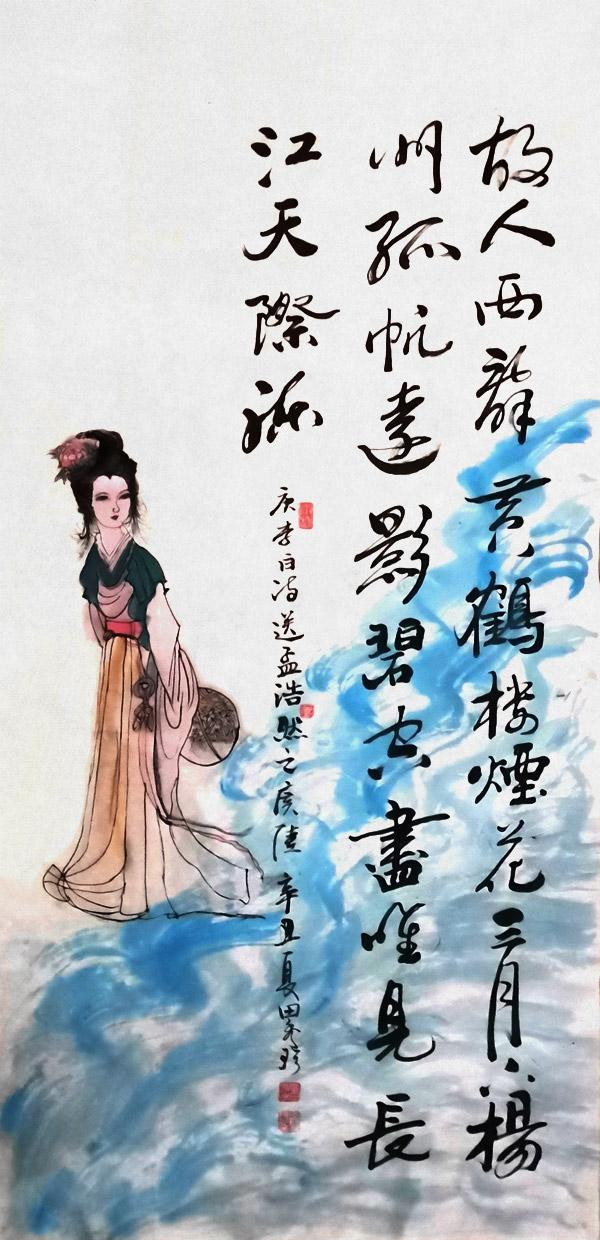 故人西辭黃鶴楼煙花三月下揚
州孤帆遠影碧空盡唯見長
江天際流
唐李白诗送孟浩然之廣陵 辛丑夏田